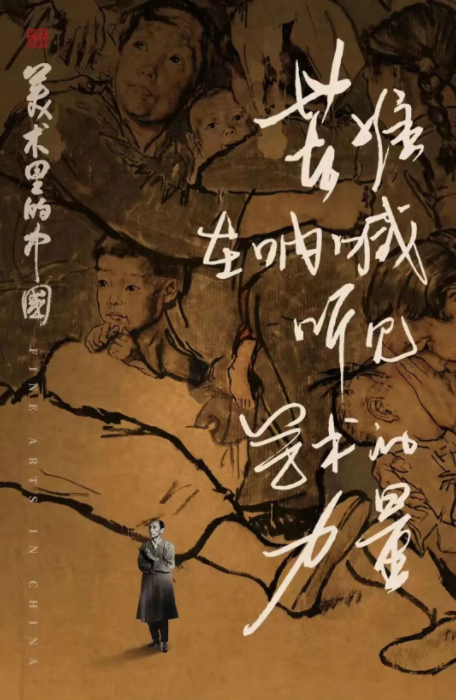 美术里的中国
FINE ARTS IN CHINA
苦难
在呐喊
听见
艺术的
力量